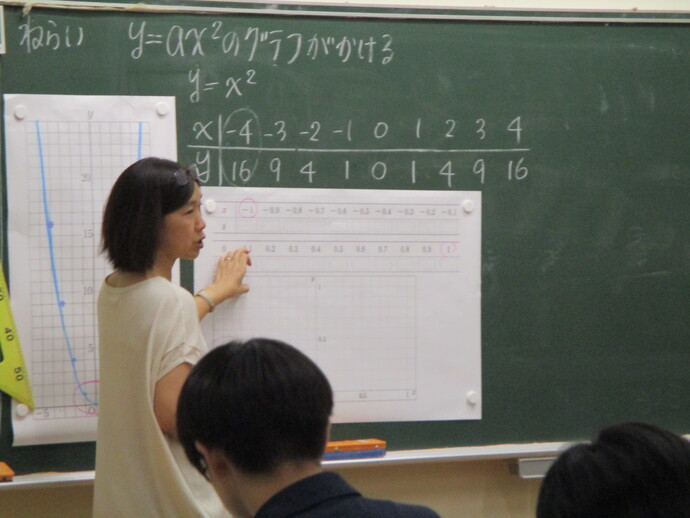 ねらい y=ax²のグラフがかける
y=x²
x -4 -3 -2 -1 0 1 2 3 4
y 16 9 4 1 0 1 4 9 16
x -1 -0.9 -0.8 -0.7 -0.6 -0.5 -0.4 -0.3 -0.2 -0.1
0.2 0.3 0.4 0.5 0.6 0.7 0.8 0.9 1
15
10
5
-5
0.5
40
50